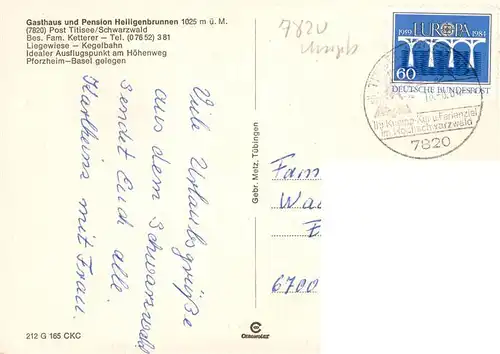 Gasthaus und Pension Heiligenbrunnen 1025 m ü. M.
(7820) Post Titisee/Schwarzwald
Bes. Fam. Ketterer – Tel. (0 76 52) 3 81
Liegewiese – Kegelbahn
Idealer Ausflugspunkt am Höhenweg
Pforzheim–Basel gelegen
7820
EUROPA
1959 1984
60
DEUTSCHE BUNDESPOST
im Hochschwarzwald
7820
Viele Urlaubsgrüße
aus dem Schwarzwald
sendet Euch alle.
Karlheinz mit Frau.
Gebr. Metz, Tübingen
Fam
Wa
6700
212 G 165 CKC